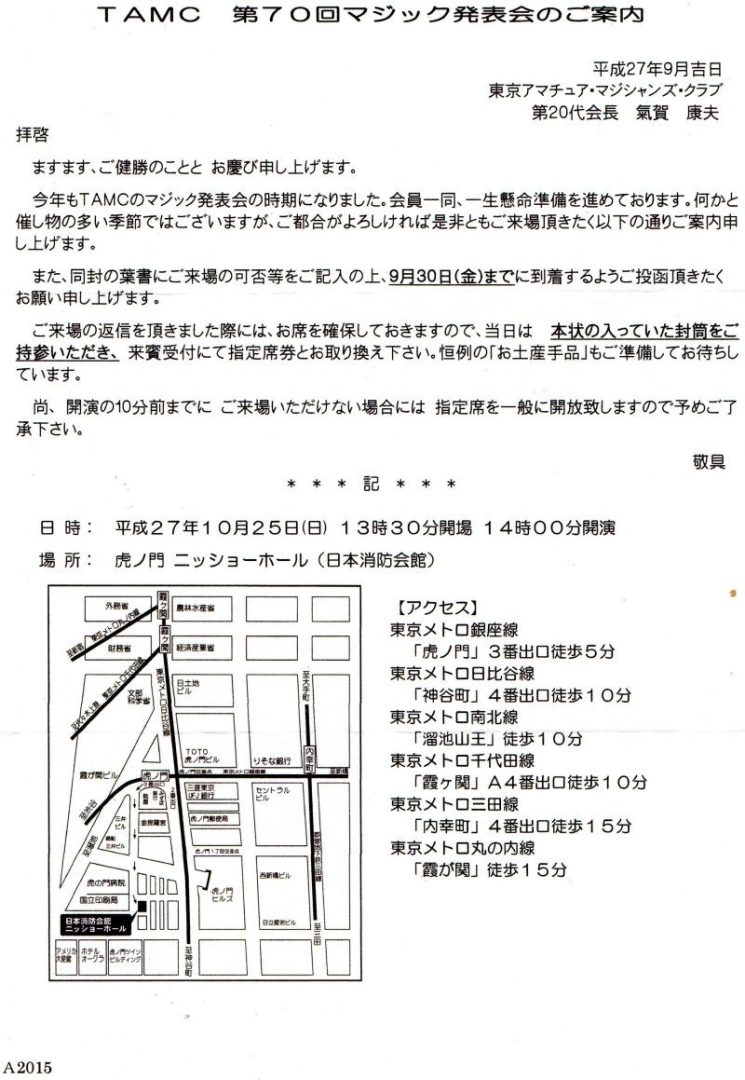 TAMC　第７０回マジック発表会のご案内
平成27年9月吉日
東京アマチュア・マジシャンズ・クラブ
第20代会長　氣賀　康夫
拝啓
ますます、ご健勝のことと お慶び申し上げます。
今年もTAMCのマジック発表会の時期になりました。会員一同、一生懸命準備を進めております。何かと
催し物の多い季節ではございますが、ご都合がよろしければ是非ともご来場頂きたく以下の通りご案内申
し上げます。
また、同封の葉書にご来場の可否等をご記入の上、9月30日(金)までに到着するようご投函頂きたく
お願い申し上げます。
ご来場の返信を頂きました際には、お席を確保しておきますので、当日は　本状の入っていた封筒をご
持参いただき、 来賓受付にて指定席券とお取り換え下さい。恒例の「お土産手品」もご準備してお待ちし
ています。
尚、 開演の10分前までに ご来場いただけない場合には 指定席を一般に開放致しますので予めご了
承下さい。
敬具
＊ ＊ ＊ 記 ＊ ＊ ＊
日 時：　平成２７年１０月２５日(日) １３時３０分開場 １４時００分開演
場 所：　虎ノ門 ニッショーホール（日本消防会館）
【アクセス】
東京メトロ銀座線
「虎ノ門」３番出口徒歩５分
東京メトロ日比谷線
「神谷町」４番出口徒歩１０分
東京メトロ南北線
「溜池山王」徒歩１０分
東京メトロ千代田線
「霞ヶ関」Ａ４番出口徒歩１０分
東京メトロ三田線
「内幸町」４番出口徒歩１５分
東京メトロ丸の内線
「霞が関」徒歩１５分
外務省
霞ケ関
農林水産省
東京メトロ丸ノ内線
財務省
霞ケ関
経済産業省
東京メトロ千代田線
東京メトロ日比谷線
文部
科学省
日土地
ビル
至大手町
至代々木上原
TOTO
虎ノ門ビル
りそな銀行
内幸町
霞が関ビル
虎ノ門
虎ノ門交差点
東京メトロ銀座線
至新橋
3番出口
2番出口
至渋谷
三菱東京
UFJ銀行
セントラル
ビル
三井
ビル
金毘羅宮
虎ノ門郵便局
至溜池
虎ノ門1丁目交差点
虎の門病院
西新橋ビル
国立印刷局
虎ノ門
ヒルズ
日本消防会館
ニッショーホール
日立愛宕ビル
至三田
至神谷町
アメリカ
大使館
ホテル
オークラ
虎ノ門ツイン
ビルディング
A2015